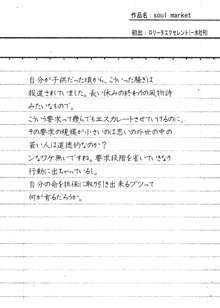 作品名：soul market
初出：ロリータエクセレント(一水社刊)
自分が子供だった頃から、こういった騒ぎは
報道されていました。長い休みの終わりの風物詩
みたいなもので。
こういう要求って幾らでもエスカレートさせていけるのに、
その要求の規模が小さいのは思いの外世の中の
若い人は道徳的なのか？
ンなワケ無いですね。要求段階を省いていきなり
行動に出ちゃっているし。
自分の命を担保に取り引き出来るブツって
何が有るだろうか。